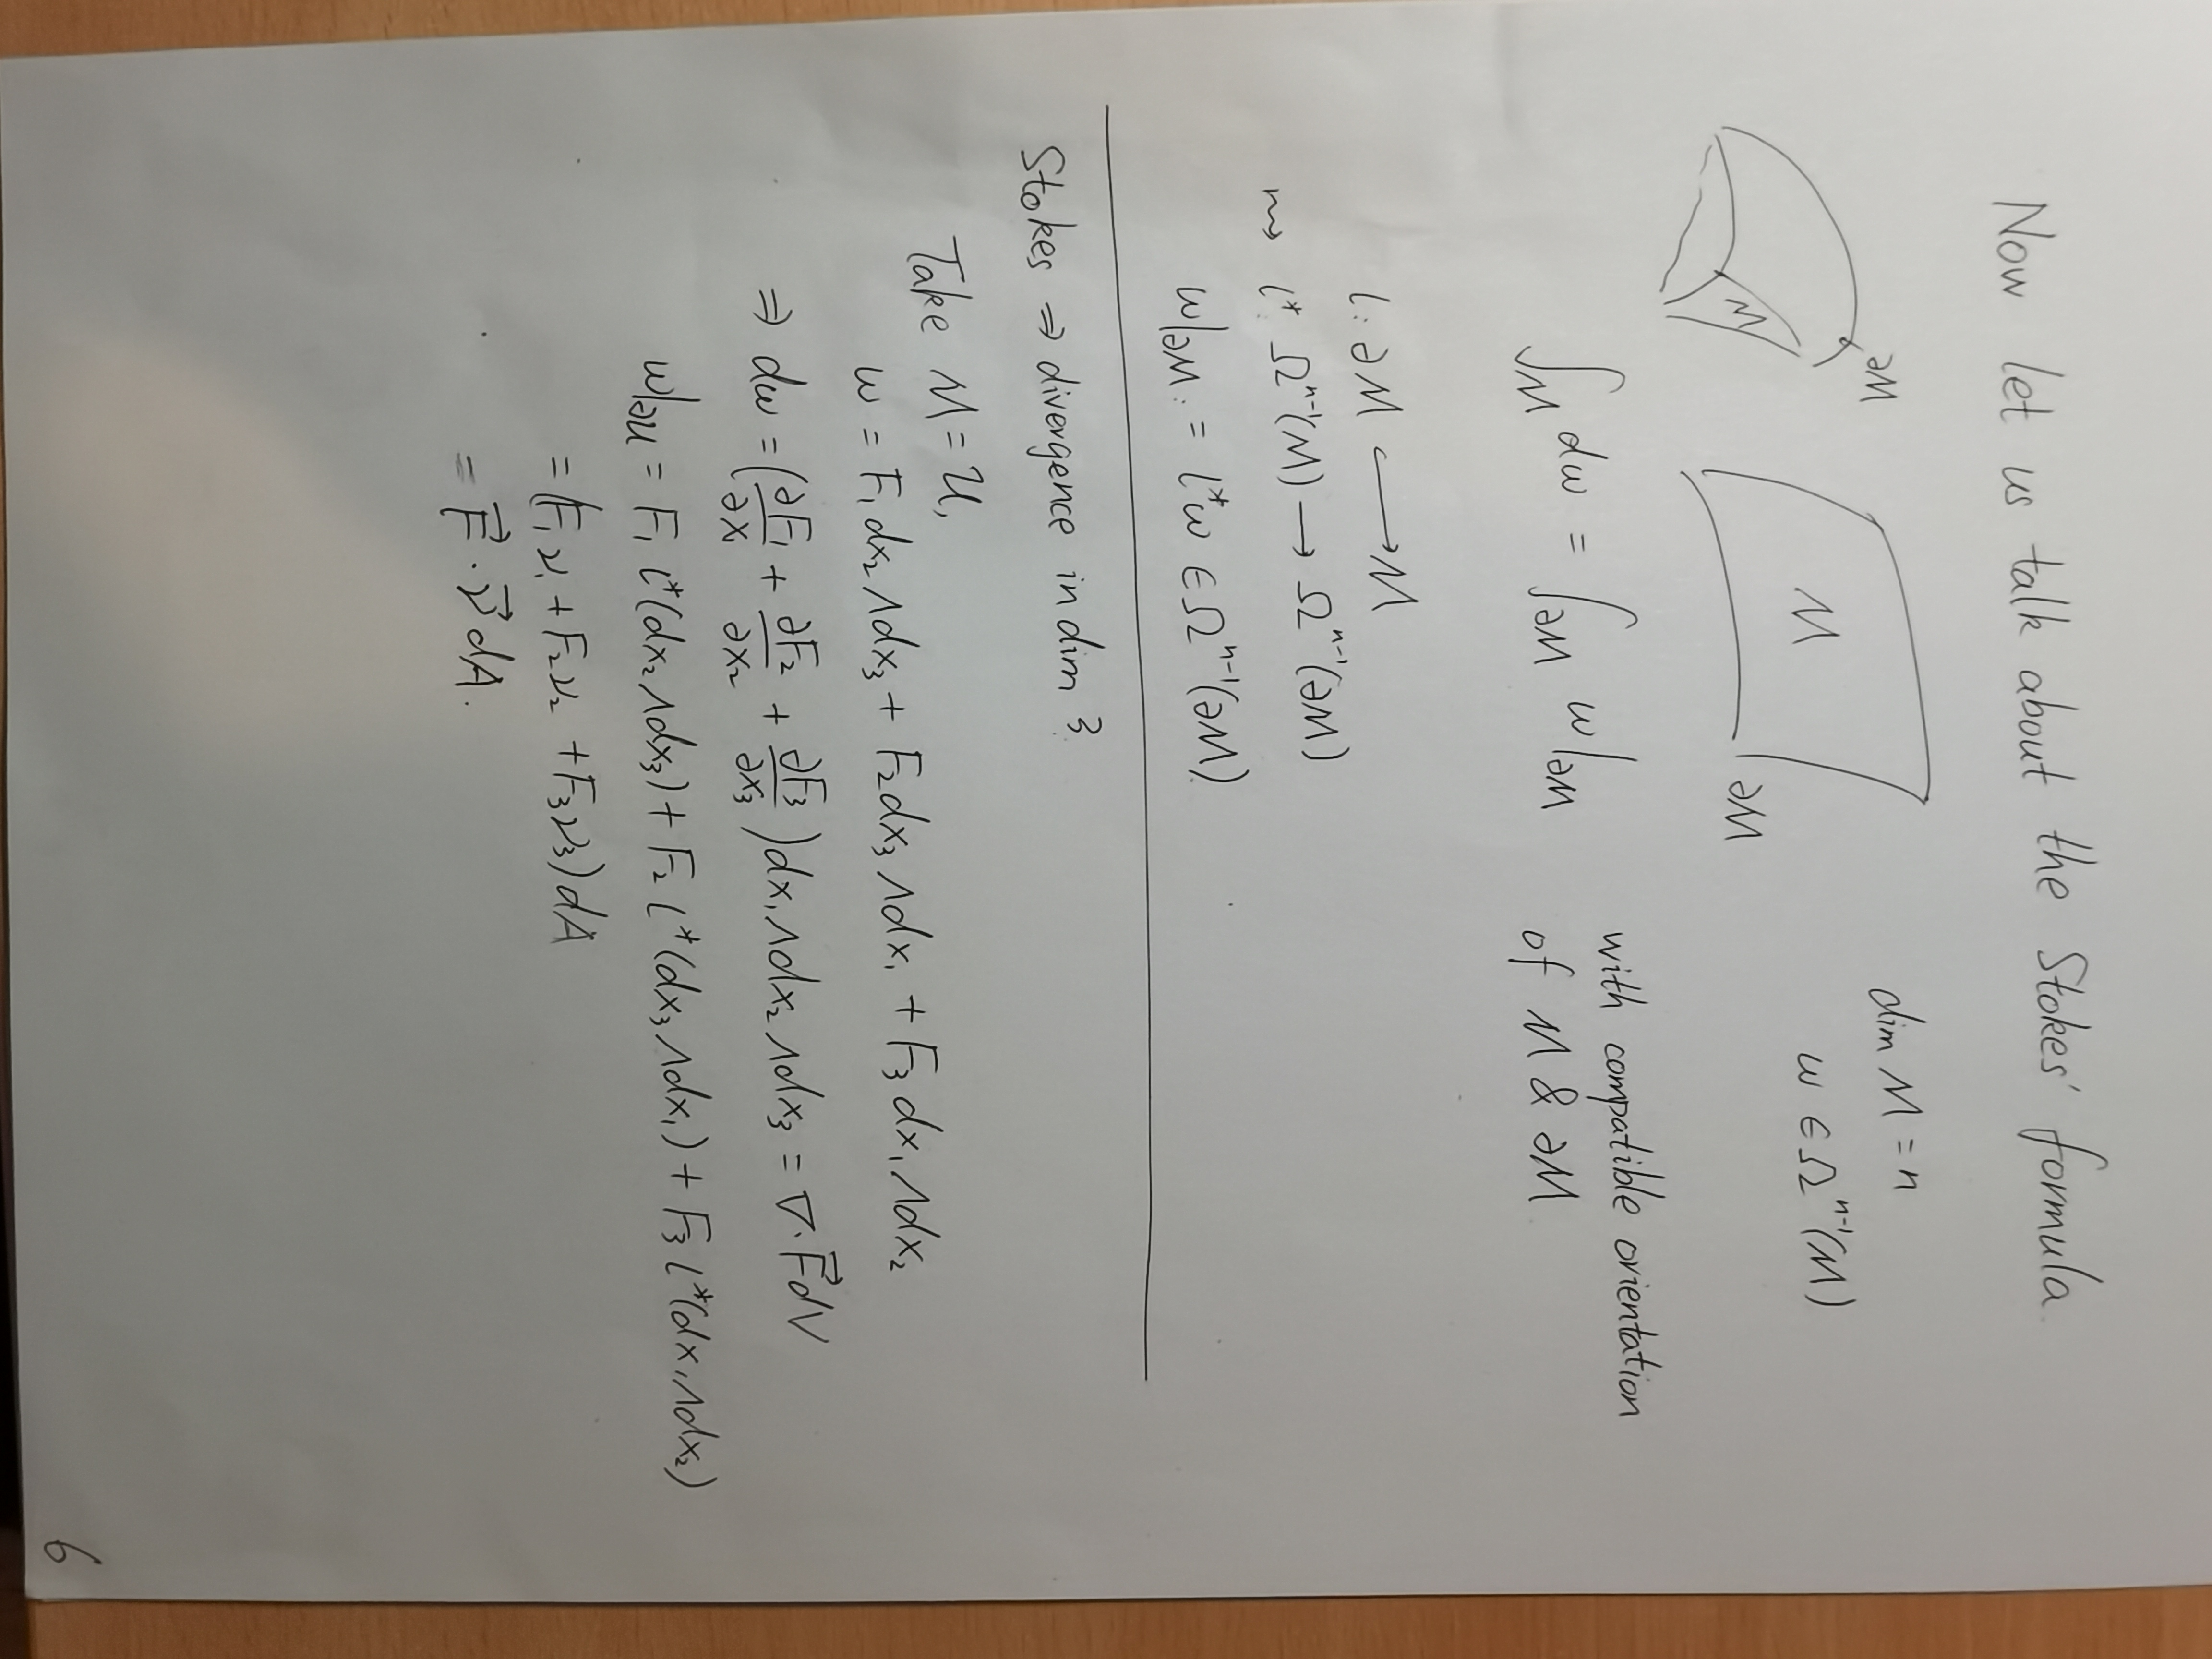 Now let us talk about the Stokes' formula.
∂M
M
M
∂M
dim M = n
ω ∈ Ω^{n-1}(M)
∫_M dω = ∫_{∂M} ω|_{∂M}
with compatible orientation
of M & ∂M.
ι: ∂M ↪ M
⇝ ι*: Ω^{n-1}(M) → Ω^{n-1}(∂M)
ω|_{∂M} := ι*ω ∈ Ω^{n-1}(∂M).
Stokes ⇒ divergence in dim 3.
Take M = U,
ω = F₁ dx₂ ∧ dx₃ + F₂ dx₃ ∧ dx₁ + F₃ dx₁ ∧ dx₂
⇒ dω = (∂F₁/∂x₁ + ∂F₂/∂x₂ + ∂F₃/∂x₃) dx₁ ∧ dx₂ ∧ dx₃ = ∇·F⃗ dV
ω|_{∂U} = F₁ ι*(dx₂ ∧ dx₃) + F₂ ι*(dx₃ ∧ dx₁) + F₃ ι*(dx₁ ∧ dx₂)
= (F₁ν₁ + F₂ν₂ + F₃ν₃) dA
= F⃗ · ν⃗ dA.
6